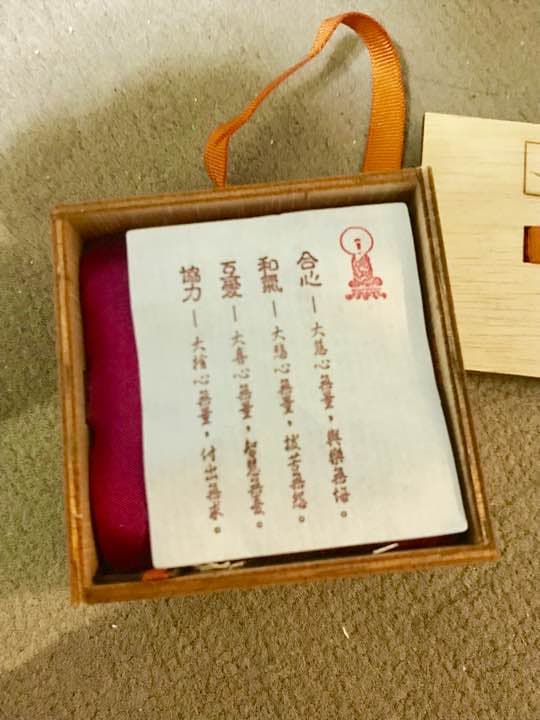 合心—大慈心無量，與樂無悔。
和氣—大悲心無量，拔苦無怨。
互愛—大喜心無量，智慧無憂。
協力—大捨心無量，付出無求。